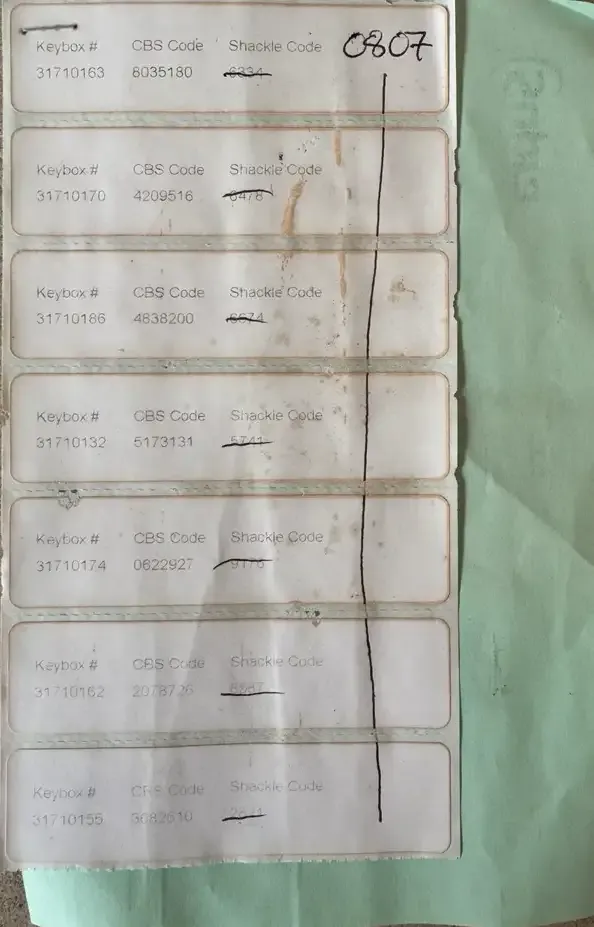 0807
Keybox # CBS Code Shackle Code
31710163 8035180 6334
Keybox # CBS Code Shackle Code
31710170 4209516 6478
Keybox # CBS Code Shackle Code
31710186 4838200 6674
Keybox # CBS Code Shackle Code
31710132 5173131 5741
Keybox # CBS Code Shackle Code
31710174 0622927 9176
Keybox # CBS Code Shackle Code
31710162 2078726
Keybox # CBS Code Shackle Code
31710155 3082510